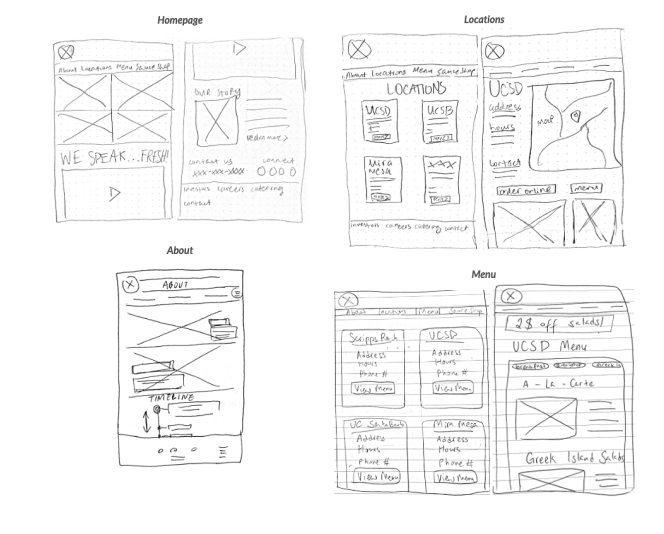 Homepage
About Locations Menu Sauce Shop
WE SPEAK...FRESH!
OUR STORY
contact us
connect
xxx-xxx-xxxx
careers catering
contact
Locations
About Locations Menu Sauce Shop
LOCATIONS
UCSD
UCSB
Mira
Mesa
XXX
investors careers catering contact
UCSD
address
hours
contact
map
order online
menu
About
ABOUT
TIMELINE
Menu
About Locations Menu Sauce Shop
UCSD
Address
Hours
Phone #
View Menu
Address
Hours
Phone #
View Menu
Mira Mesa
Address
Hours
Phone #
View Menu
Address
Hours
Phone #
View Menu
2$ off salads!
UCSD Menu
A - La - Carte
Greek Island Salads